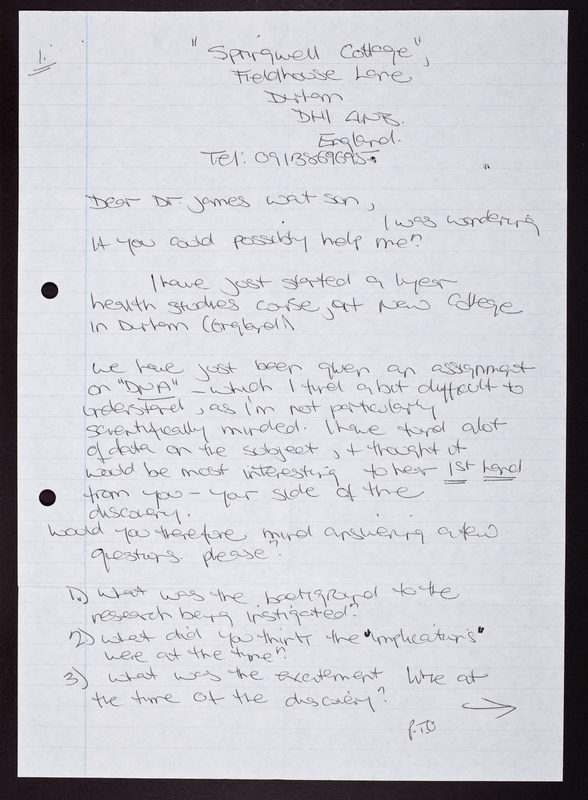 1.
"Springwell Cottage",
Fieldhouse Lane
Durham
DH1 4NB.
England.
Tel: 0913869695.
Dear Dr James Watson,
I was wondering
If you could possibly help me?
I have just started a 1 year
health studies course, at New College
in Durham (England)
We have just been given an assignment
on "DNA" - which I find a bit difficult to
understand, as i'm not particularly
scientifically minded. I have found alot
of data on the subject, & thought it
would be most interesting to hear 1st hand
from you - your side of the
discovery.
Would you therefore mind answering a few
questions please?
1.) What was the background to the
research being instigated?
2) What did you think the "implications"
were at the time?
3) What was the excitement like at
the time of the discovery?
P.T.O